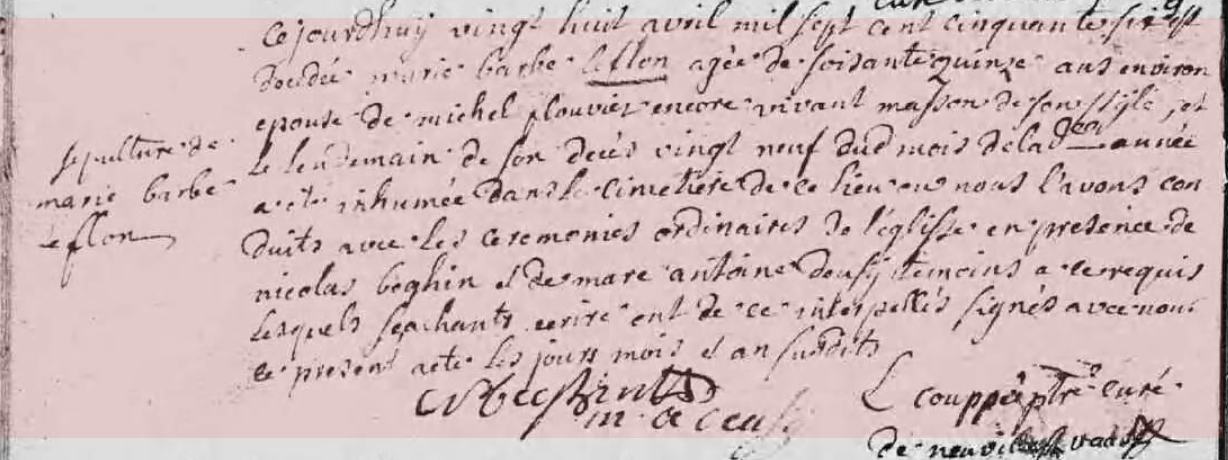 cejourdhuy vingt huit avril mil sept cent cinquante six est
decedée marie barbe leflon agée de soisante quinze ans environ
epouse de michel plouvier encore vivant masson de son stile, et
sepulture de
le lendemain de son decès vingt neuf dud mois de la d année
marie barbe
a eté inhumée dans le cimetiere de ce lieu ou nous l'avons con
leflon
duits avec les ceremonies ordinaires de l'églisse en presence de
nicolas beghin et de marc antoine temoins a ce requis
lesquels sçachants ecrire ont de ce interpellés signés avec nous
le present acte les jours mois et an susdits
couppé ptre curé
m a
de